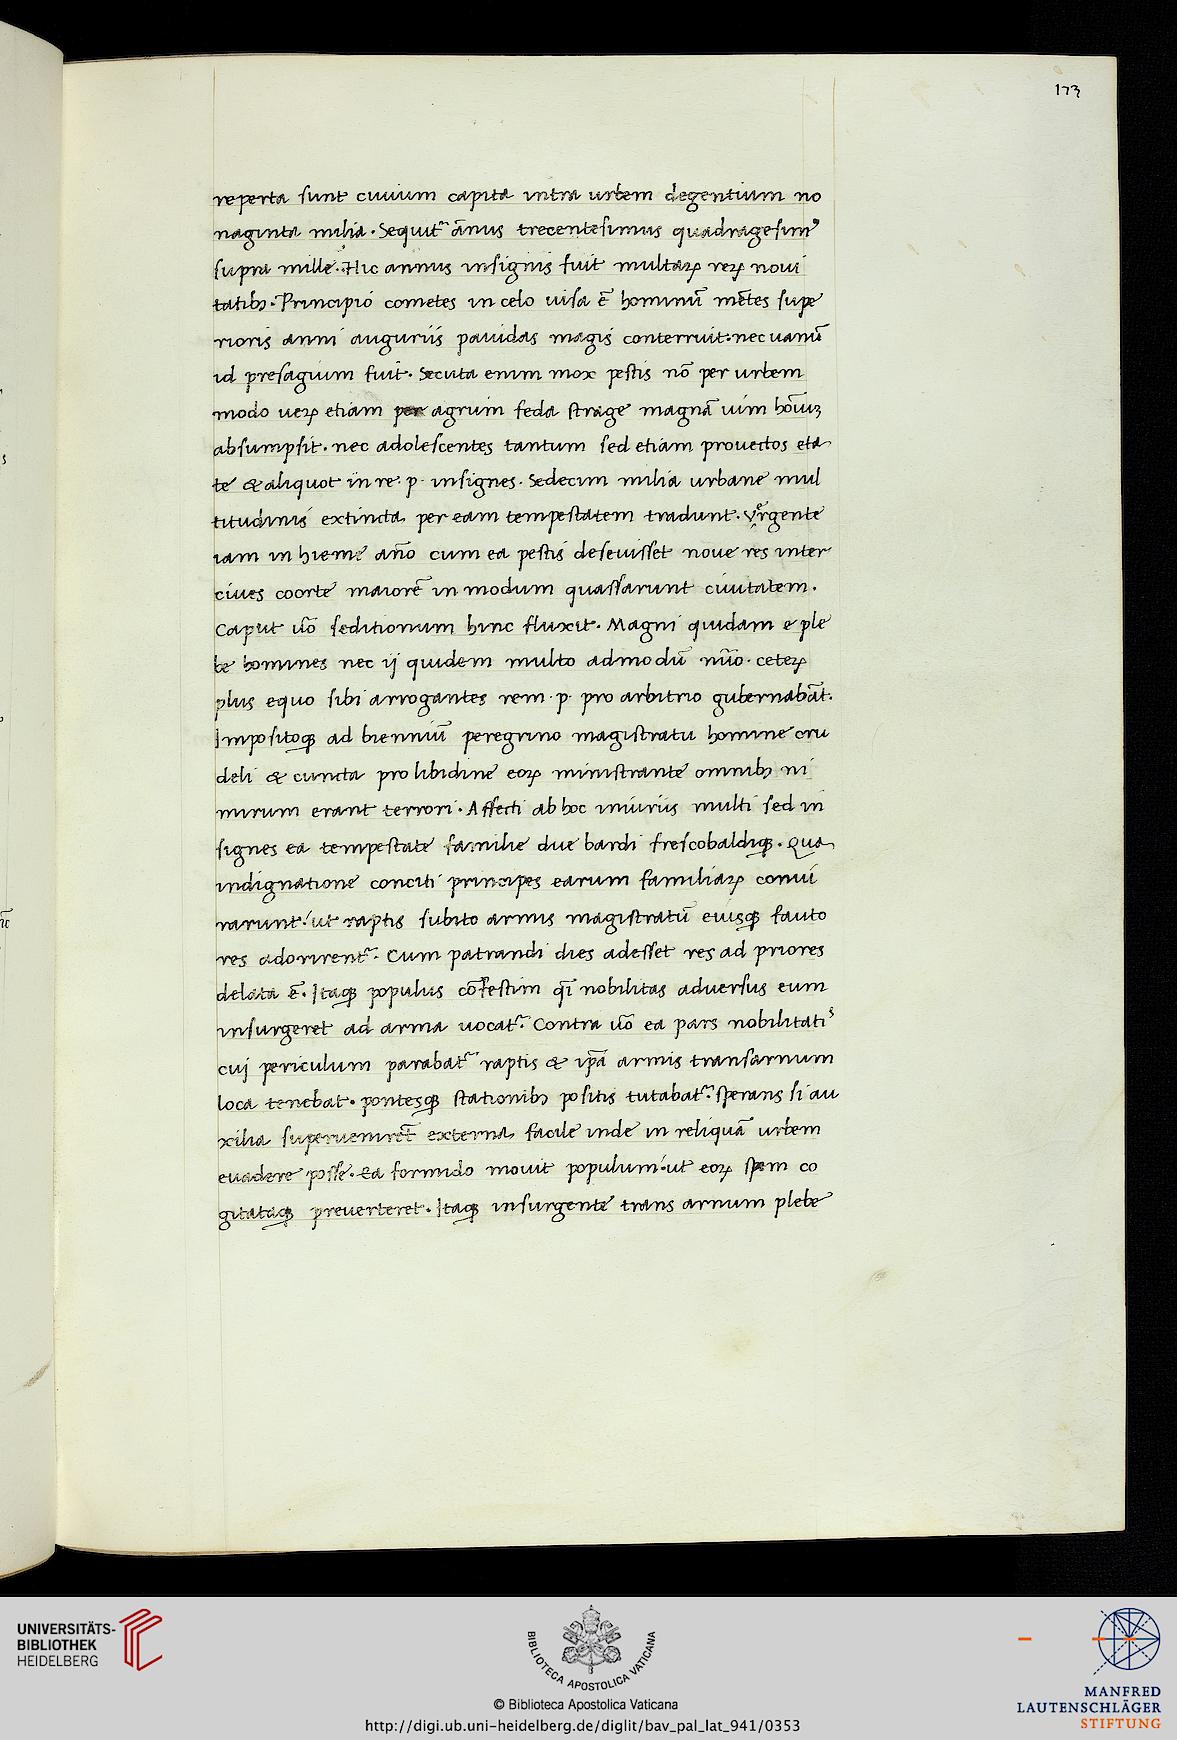 173
reperta sunt ciuium capita intra urbem degentium no
naginta milia. Sequit᷑ ãnus trecentesimus quadragesimꝰ
supra mille. Hic annus insignis fuit multaꝝ reꝝ noui
tatibꝫ. Principio cometes in celo uisa ẽ hominũ mẽtes supe
rioris anni auguriis pauidas magis conterruit. nec uanũ
id presagium fuit. Secuta enim mox pestis nõ per urbem
modo ueꝝ etiam per agrum feda strage magnã uim hoı̃uꝫ
absumpsit. nec adolescentes tantum sed etiam prouectos eta
te & aliquot in re. p. insignes. Sedecim milia urbane mul
titudinis extincta per eam tempestatem tradunt. Vergente
iam in hieme año cum ea pestis deseuisset noue res inter
ciues coorte maiorẽ in modum quassarunt ciuitatem.
Caput ũo seditionum hinc fluxit. Magni quidam e ple
be homines nec ij quidem multo admodũ nũo. ceteꝝ
plus equo sibi arrogantes rem .p. pro arbitrio gubernabãt.
Impositoqꝫ ad bienniũ peregrino magistratu homine cru
deli & cuncta pro libidine eoꝝ ministrante omnibꝫ ni
mirum erant terrori. Affecti ab hoc iniuriis multi sed in
signes ea tempestate familie due bardi frescobaldiqꝫ. Qua
indignatione conciti principes earum familiaꝝ coniu
rarunt: ut raptis subito armis magistratũ eiusqꝫ fauto
res adorirent᷑. Cum patrandi dies adesset res ad priores
delata ẽ. Itaqꝫ populus cõfestim qı̃ nobilitas aduersus eum
insurgeret ad arma uocat᷑. Contra ũo ea pars nobilitatis
cuj periculum parabat᷑ raptis & ip̃a armis transarnum
loca tenebat. pontesqꝫ stationibꝫ positis tutabat᷑. sperans si au
xilia superuenirẽt externa facile inde in reliquã urbem
euadere posse. Ea formido mouit populum: ut eoꝝ spem co
gitataqꝫ preuerteret. Itaqꝫ insurgente trans arnum plebe
UNIVERSITÄTS-
BIBLIOTHEK
HEIDELBERG
BIBLIOTECA APOSTOLICA VATICANA
© Biblioteca Apostolica Vaticana
http://digi.ub.uni-heidelberg.de/diglit/bav_pal_lat_941/0353
MANFRED
LAUTENSCHLÄGER
STIFTUNG